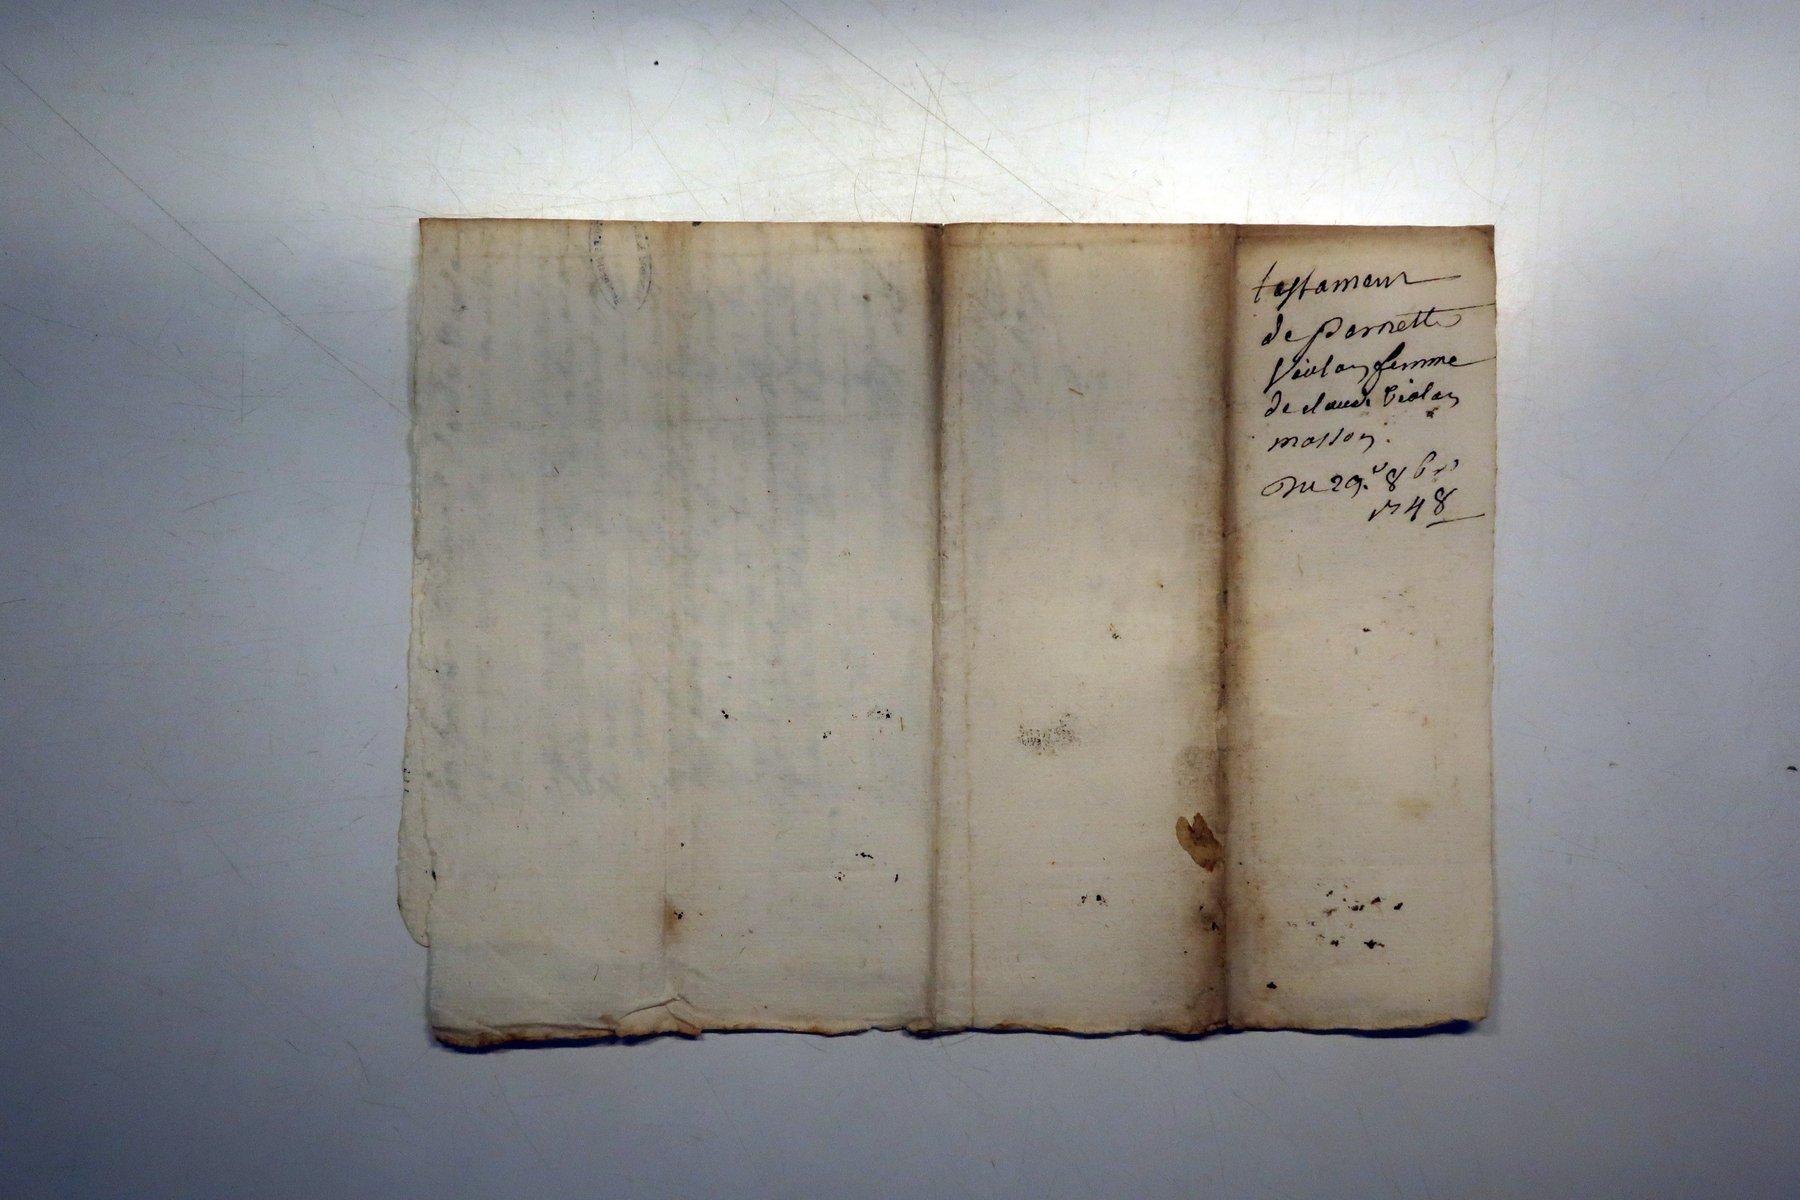 testament
de pernette
Violay femme
de claude Violay
masson.
Du 29.e 8bre
1748